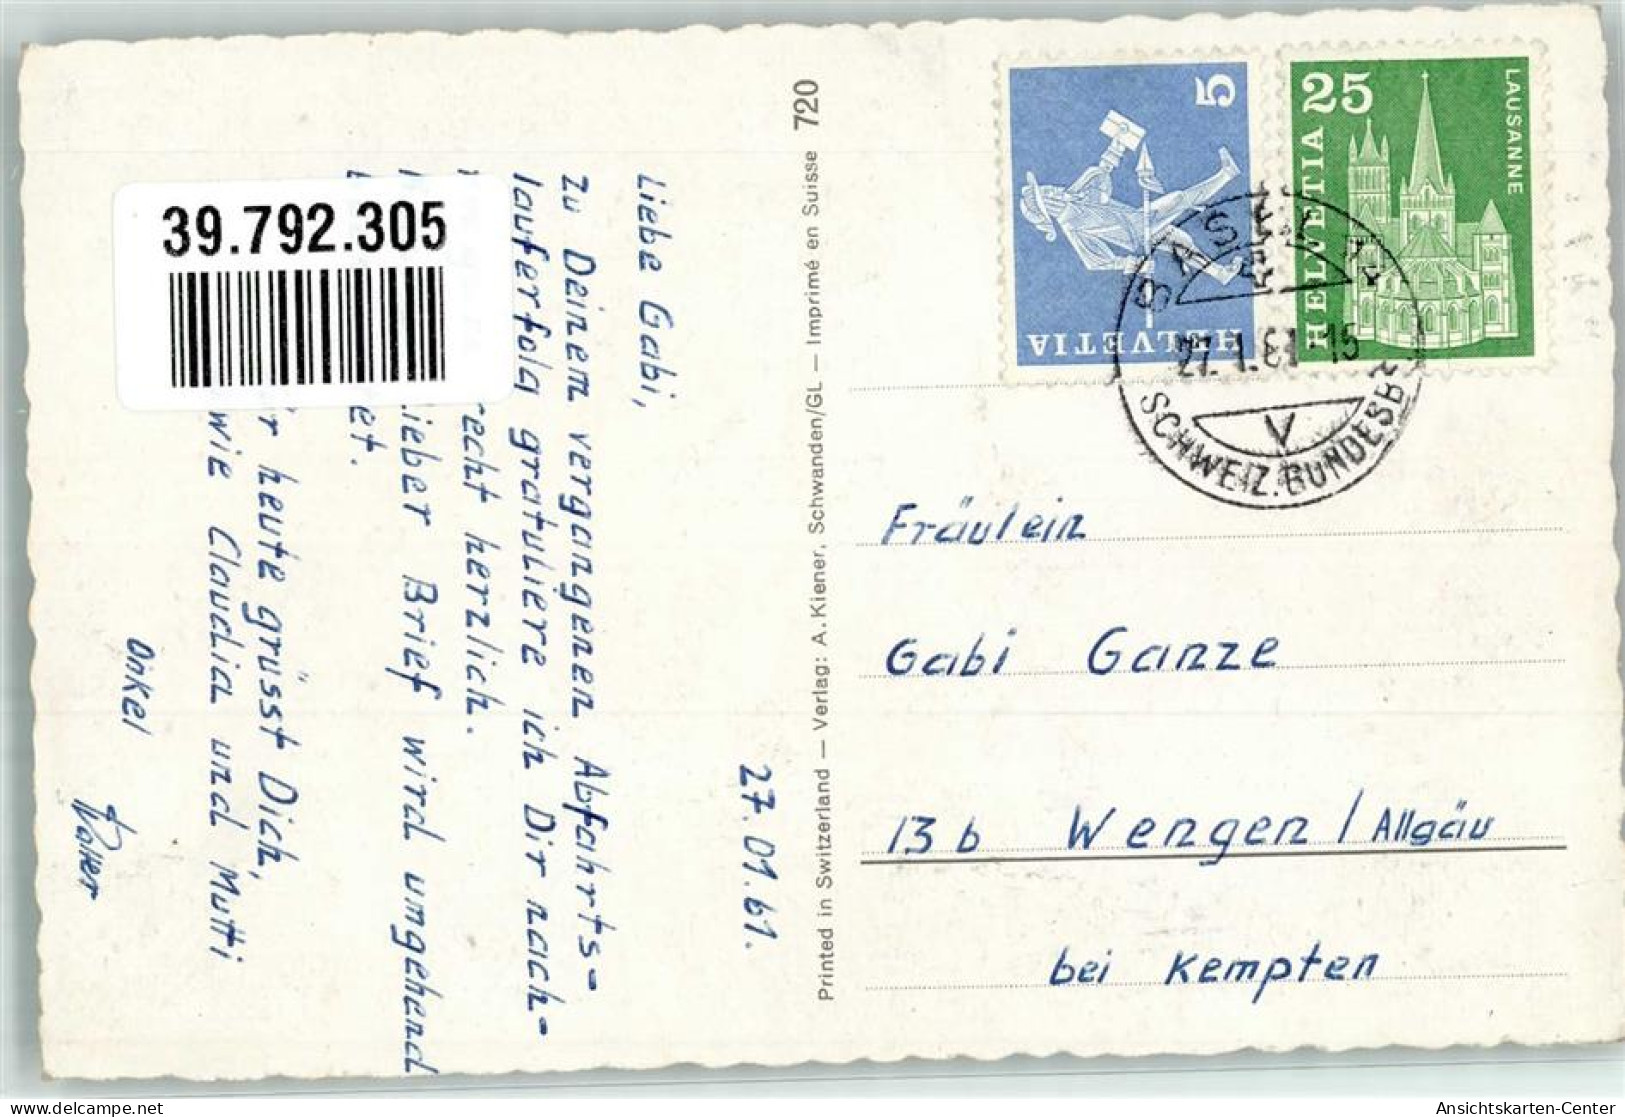 27.01.61.
Liebe Gabi,
zu Deinem vergangenen Abfahrts-
lauferfolg gratuliere ich Dir nach-
recht herzlich.
lieber Brief wird umgehend
et.
heute grüsst Dich,
wie Claudia und Mutti
Onkel
Walter
39.792.305
Printed in Switzerland — Verlag: A. Kiener, Schwanden/GL — Imprimé en Suisse 720
5
HELVETIA
25
HELVETIA
LAUSANNE
BASEL
27.1.61-15
V
SCHWEIZ. BUNDESB.
Fräulein
Gabi Ganze
13 b Wengen / Allgäu
bei Kempten
Ansichtskarten-Center